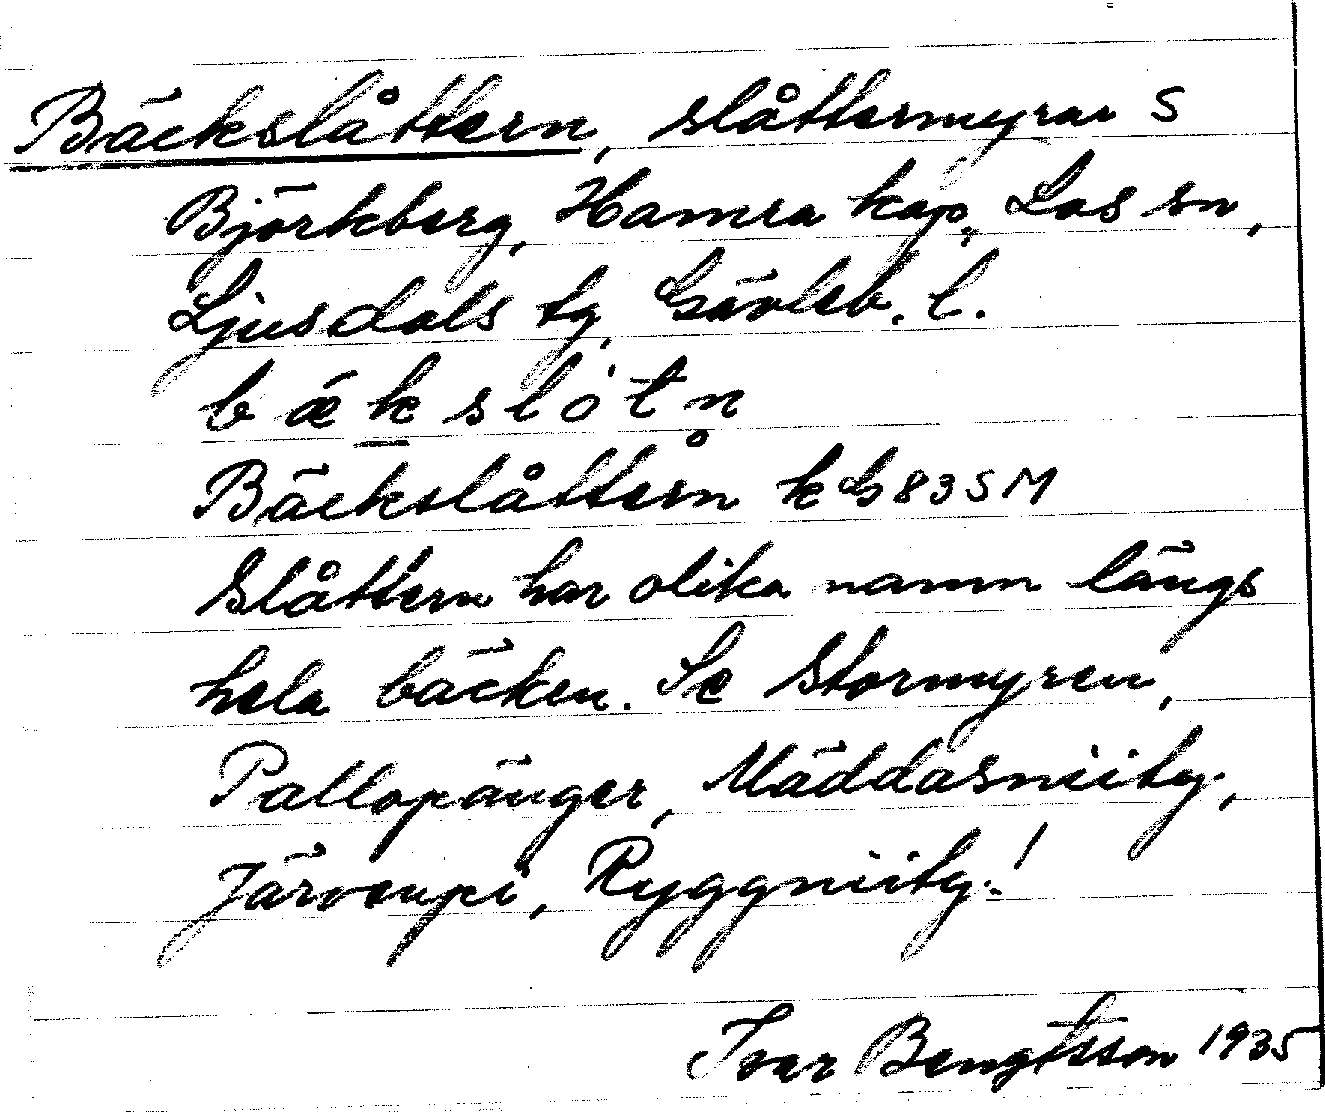 Bäckslåttern, slåttermyrar S
Björkberg, Hamra kap, Los sn,
Ljusdals tg, Gävleb. l.
bækslòtn̥
Bäckslåttern kG83SM
Slåttern har olika namn längs
hela bäcken. Se Stormyren,
Pallopänger, Mäddasniity,
Järvenpi, Ryggniity!
Ivar Bengtsson 1935